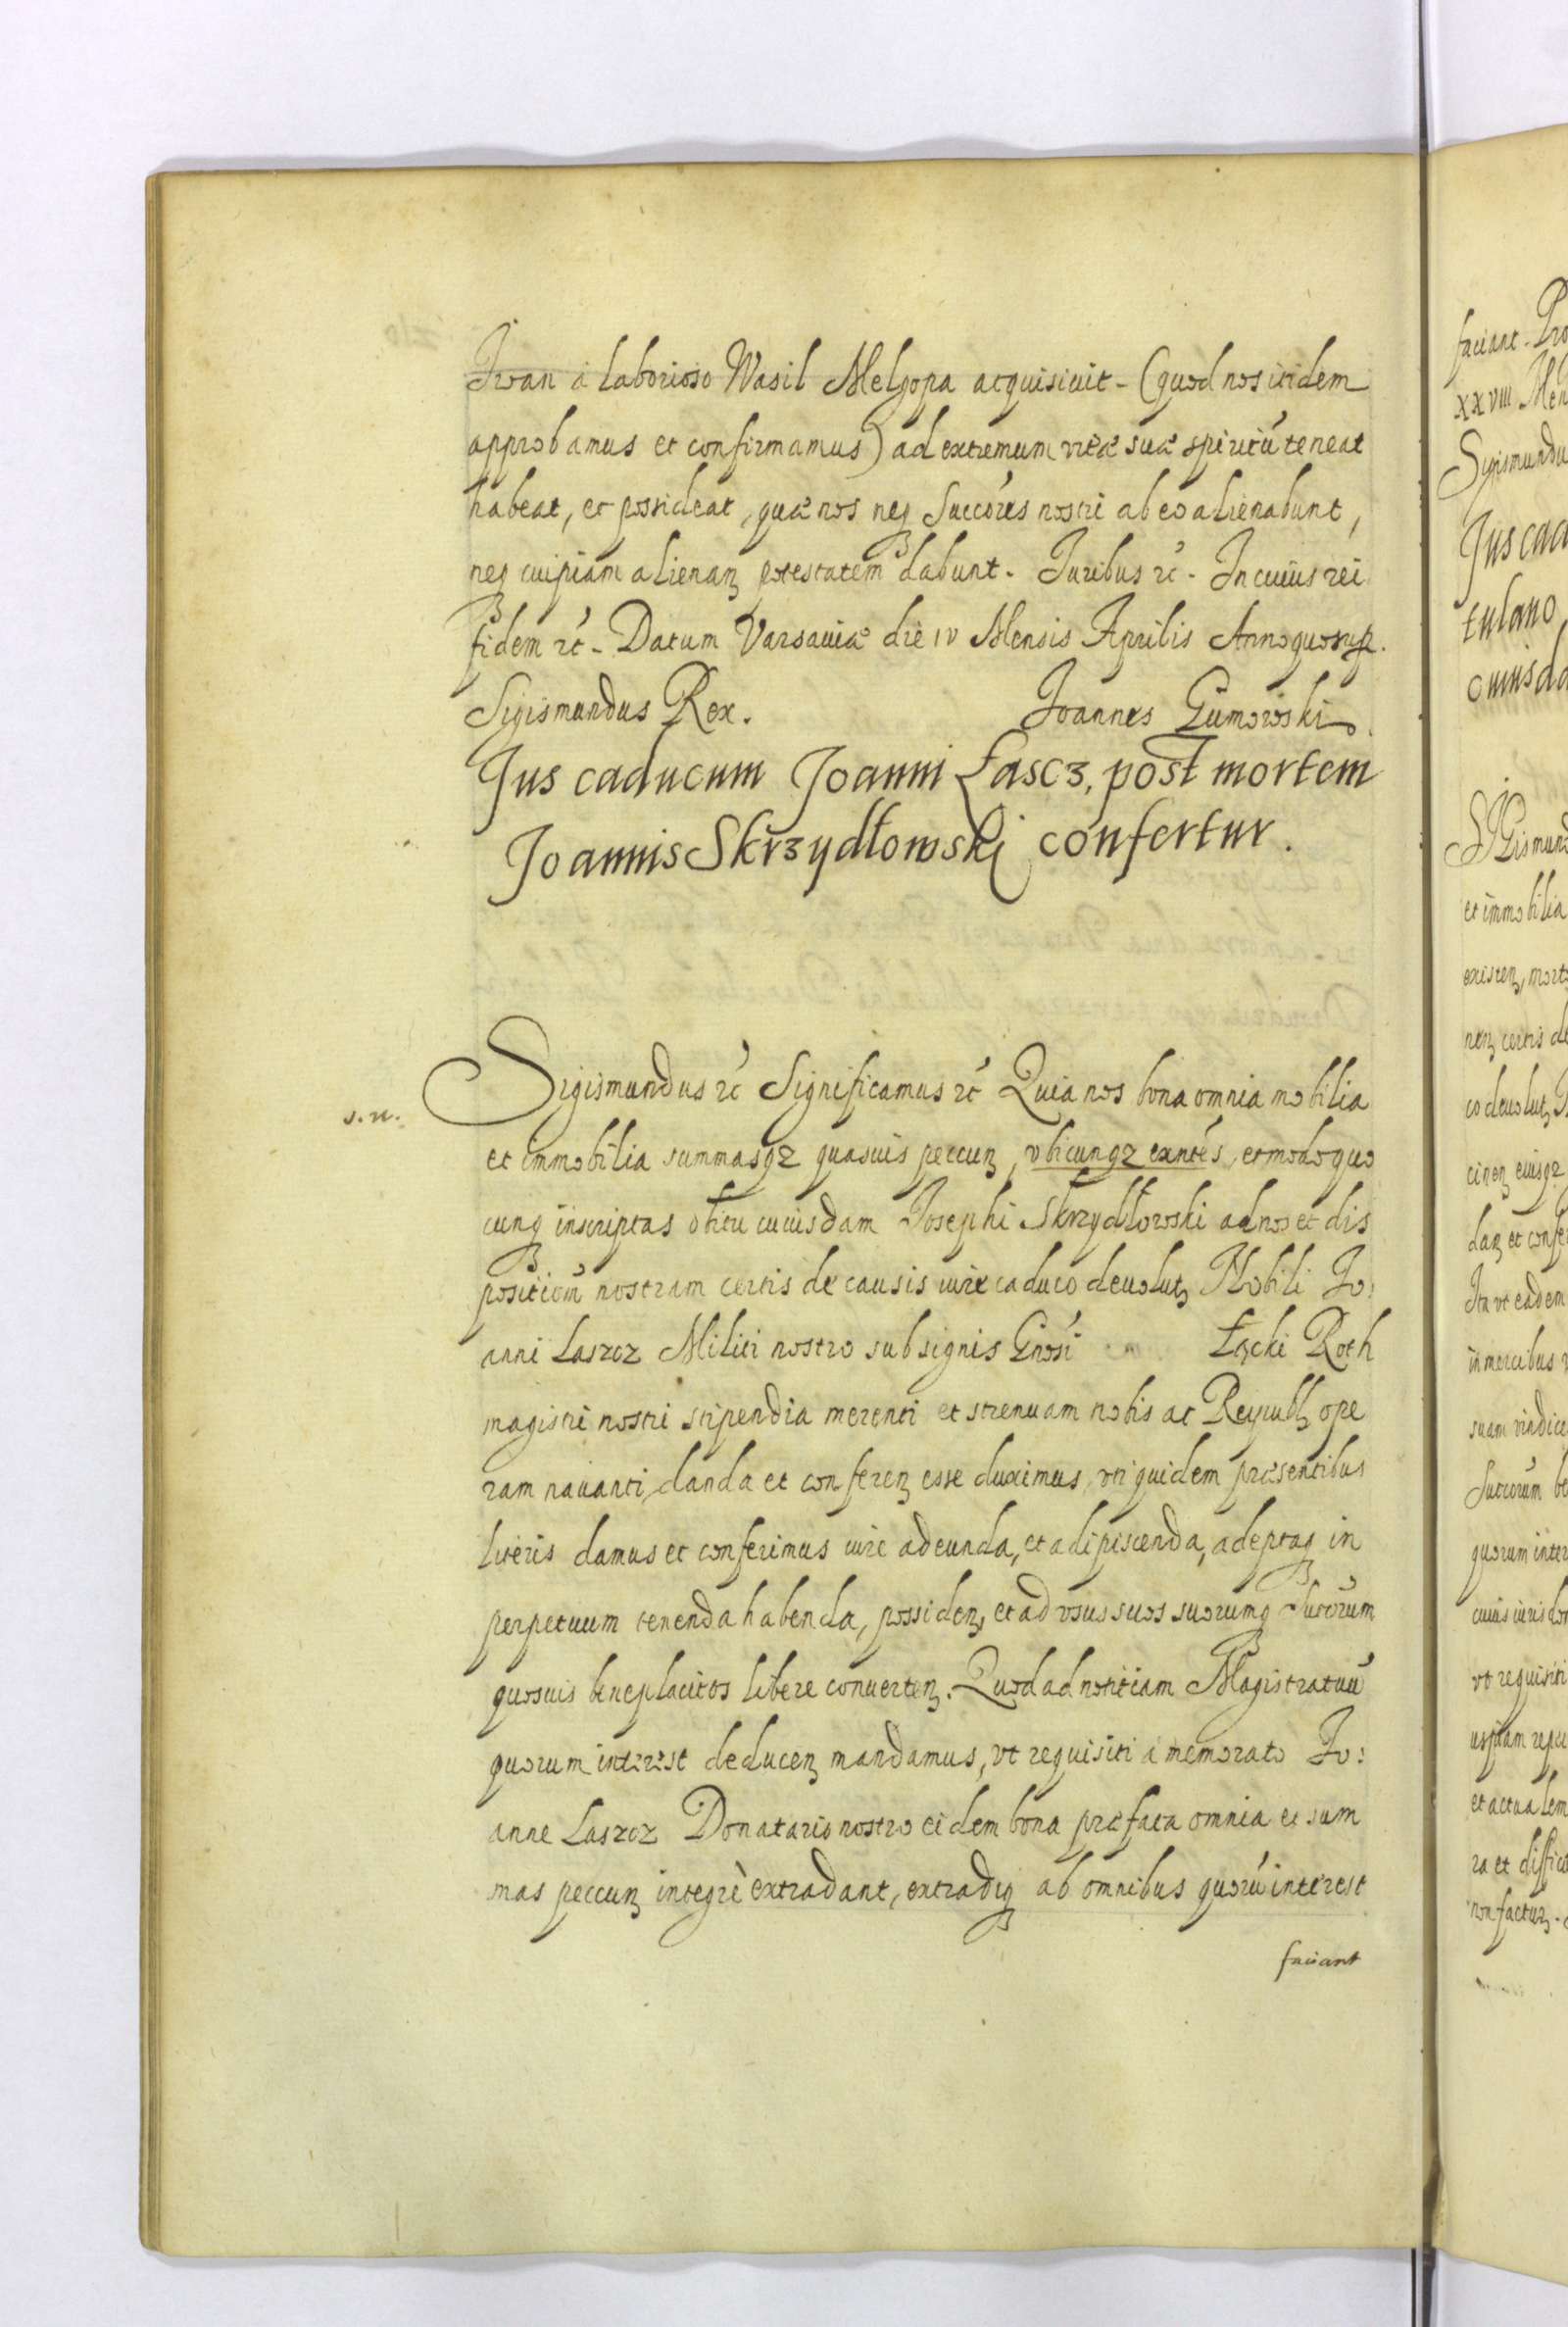 Iwan a laborioso Wasil Melgopa acquisiuit - (quod nos itidem
approbamus et confirmamus) ad extremum vitæ suæ spiritú teneat
habeat, et possideat, quæ nos neq Succóres nostri ab eo alienabunt,
neq cuipiam alienaȝ potestatem dabunt. Iuribus ꝛć. In cuius rei
fidem ꝛć - Datum Varsauiæ die IV Mensis Aprilis Anno quo sup.
Sigismundus Rex. Joannes Gumowski.
Jus caducum Joanni Łascz, post mortem
Joannis Skrzydłowskj confertur.
Sigismundus ꝛć Significamus ꝛć Quia nos bona omnia mobilia
s. n.
et immobilia summasqȝ quasuis peccuȝ, vbicunqȝ exntés, et modo quo
cunq inscriptas obitu cuiusdam Josephi Skrzydłowski ad nos et dis
positioú nostram certis de causis iure caduco deuolutȝ Nobili Jo:
anni Laszcz Militi nostro sub signis Gnósi Łȩcki Roth
magistri nostri stipendia merenti et strenuam nobis ac Reipubȝ ope
ram nauanti, danda et conferenȝ esse duximus, vti quidem præsentibus
literis damus et conferimus iure adeunda, et adipiscenda, adeptaq in
perpetuum tenenda habenda, possidenȝ, et ad vsus suos suorumq Sucórum
quosuis beneplacitos libere conuertenȝ. Quod ad notitiam Magistratuú
quorum interest deducenȝ mandamus, vt requisiti a memorato Jo:
anne Laszcz Donatario nostro eidem bona præfata omnia et sum
mas peccuȝ integrè extradant, extradiq ab omnibus quorú interest
faciant
faciant. Pro
XXVIII Men
Sigismundu
Jus cad
tulano
omnis da
SIGismund
et immobilia
existenȝ, morte
nenȝ certis de
co deuolutȝ
cinenȝ eiusqȝ
danȝ et confe
Ita vt eadem
in mercibus
suam vindice
Sutcorum be
quorum inter
cuius iuris do
vt requisiti
et actualem
ra et diffic
non factuȝ.